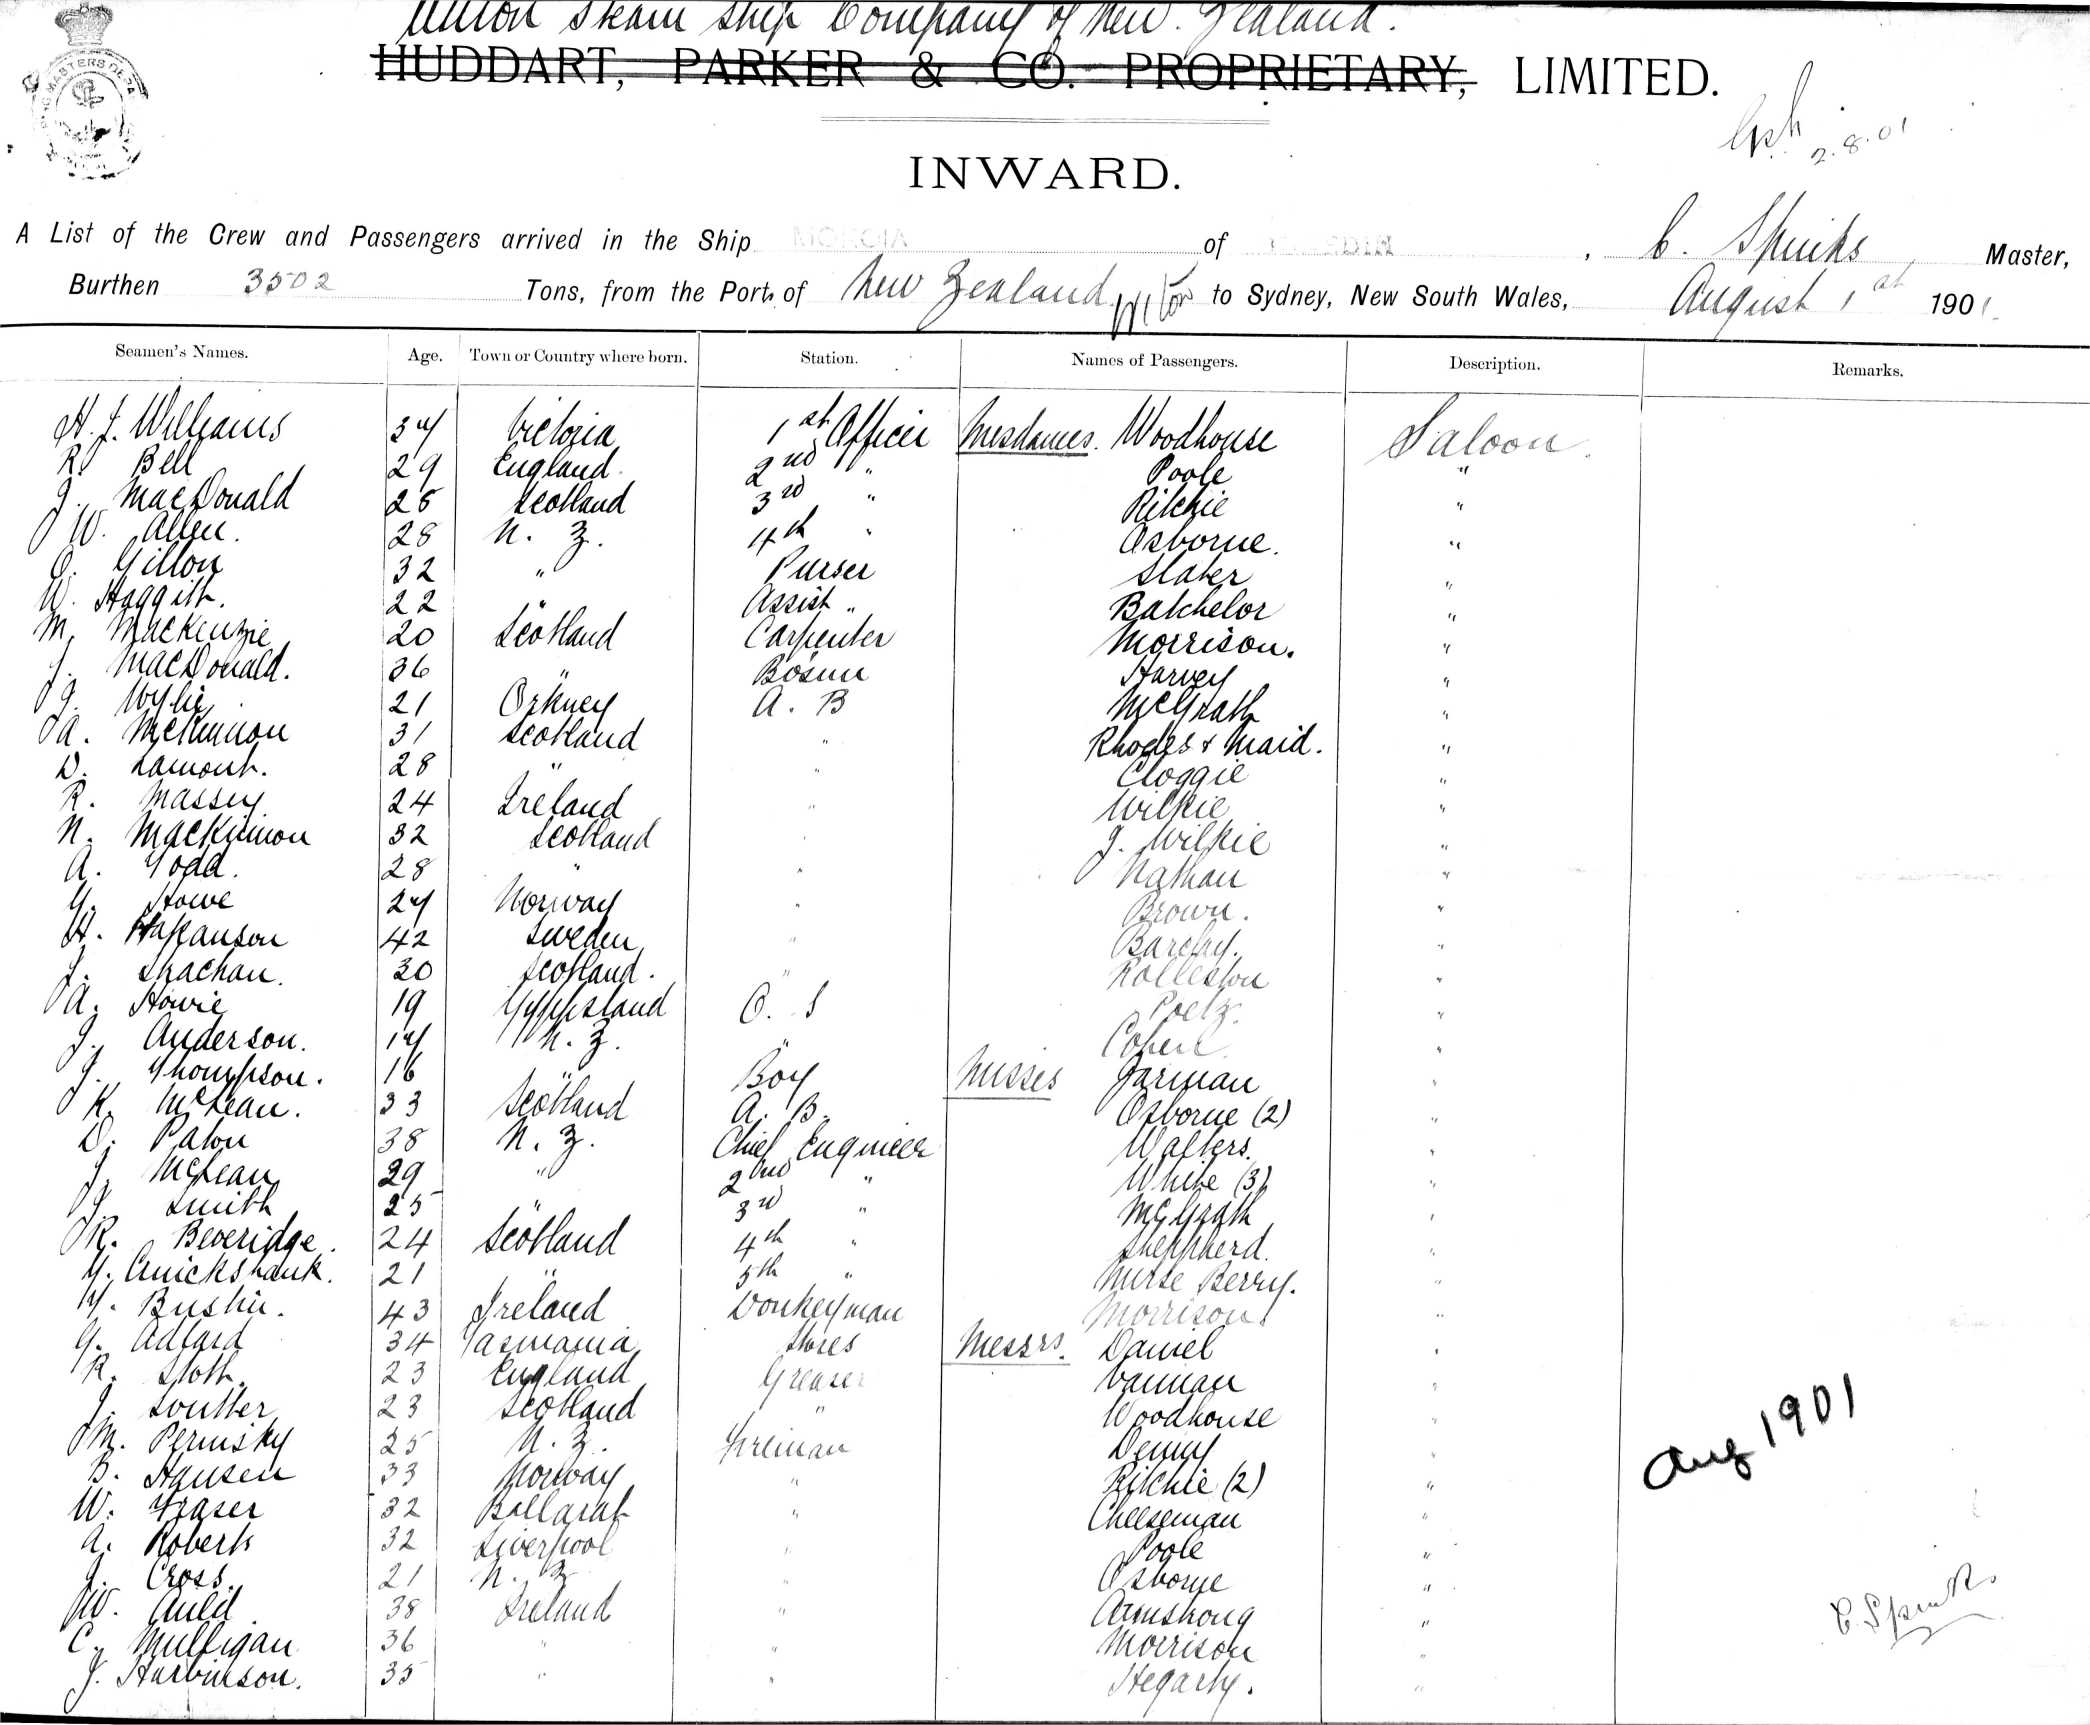 Union Steam Ship Company of New Zealand.
HUDDART, PARKER & CO. PROPRIETARY, LIMITED.
2.8.01
INWARD.
A List of the Crew and Passengers arrived in the Ship MONOWAI of DUNEDIN, C. Spinks Master,
Burthen 3502 Tons, from the Port of New Zealand to Sydney, New South Wales, August 1st 1901.
Seamen's Names. Age. Town or Country where born. Station. Names of Passengers. Description. Remarks.
H. J. Williams 34 Victoria 1st Officer Mesdames. Woodhouse Saloon.
R. Bell 29 England. 2nd " Poole "
J. MacDonald 28 Scotland 3rd " Ritchie "
W. Allen. 28 N. Z. 4th " Osborne. "
O. Gillon 32 " Purser Slater "
W. Haggitt. 22 " Assist " Batchelor "
M. MacKenzie 20 Scotland Carpenter Morrison. "
J. MacDonald. 36 " Bosun Harvey "
J. Wylie 21 Orkney A. B McGrath "
A. McKinnon 31 Scotland " Rhodes & Maid. "
D. Lamont. 28 " " Cloggie "
R. Massey 24 Ireland " Wilkie "
N. MacKinnon 32 Scotland " J. Wilkie "
A. Todd. 28 " " Nathan "
Howe 24 Norway " Brown. "
H. Hakanson 42 Sweden " Barclay. "
J. Strachan. 30 Scotland. " Rolleston "
A. Howie 19 Gippsland O. S "
J. Anderson. 17 N. Z. " Cohen "
J. Thompson. 16 " Boy Misses Jarman "
K. McLean. 33 Scotland A. B. Osborne (2) "
D. Paton 38 N. Z. Chief Engineer Walters. "
J. McLean 29 " 2nd " White (3) "
J. Smith 25 " 3rd " McGrath "
R. Beveridge. 24 Scotland 4th " Sheppherd. "
Cruickshank. 21 " 5th " Nurse Berry. "
43 Ireland Donkeyman Morrison "
G. Adlard 34 Tasmania Stores Messrs. Daniel "
R. 23 England Greaser "
J. Soutter 23 Scotland " Woodhouse "
M. Perinsky 25 N. Z. Fireman Denny "
B. Hansen 33 Norway " Ritchie (2) "
W. Fraser 32 Ballarat " Cheeseman "
A. Roberts 32 Liverpool " Poole "
J. Cross. 21 N. Z " Osborne "
W. Auld. 38 Ireland " Armstrong "
C. Mulligan 36 " " Morrison "
J. Harbinson. 35 " " Hegarty. "
Aug 1901
C. Spinks